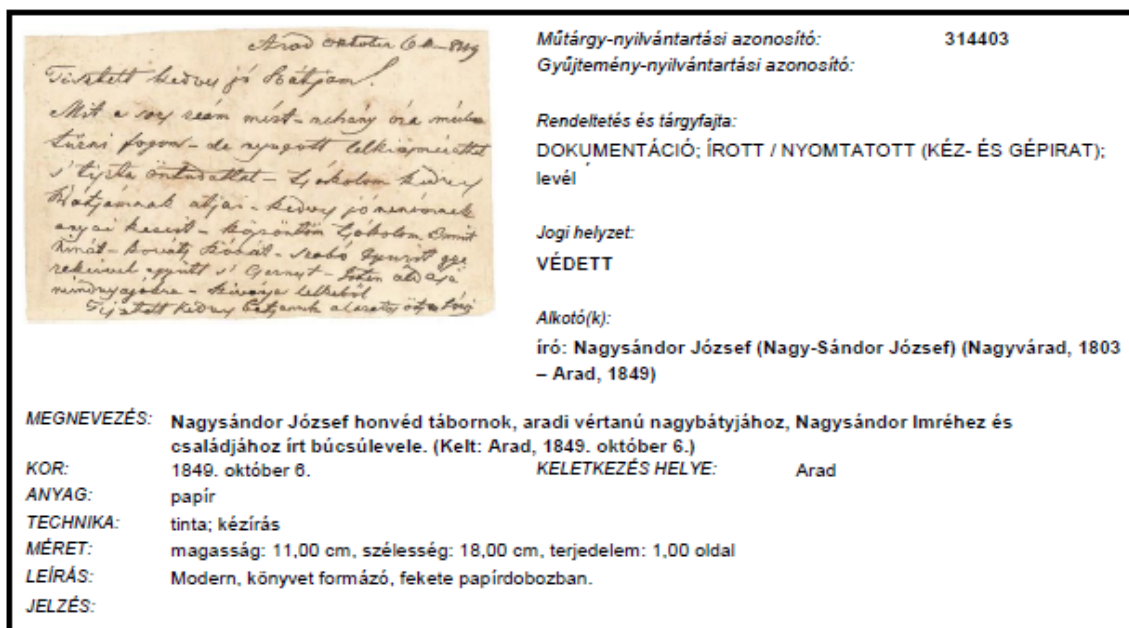 Arad october 6k–849
Tisztelt kedves jó Bátjam!
Mit a sors reám mért – néhány óra múlva
tűrni fogom – de nyugott lelkiismérettel
s' tiszta öntudattal – Csókolom kedves
Bátjamnak atjai – kedves jó nénémnek
anyai kezeit – köszöntöm Csókolom
Ninát – szabó
együtt s' – Isten áldása
mindnyájokra – kivánja lelkéből
Tisztelt kedves Bátjamnak alázatos öcse Józsi
Műtárgy-nyilvántartási azonosító: 314403
Gyűjtemény-nyilvántartási azonosító:
Rendeltetés és tárgyfajta:
DOKUMENTÁCIÓ; ÍROTT / NYOMTATOTT (KÉZ- ÉS GÉPIRAT);
levél
Jogi helyzet:
VÉDETT
Alkotó(k):
író: Nagysándor József (Nagy-Sándor József) (Nagyvárad, 1803
– Arad, 1849)
MEGNEVEZÉS: Nagysándor József honvéd tábornok, aradi vértanú nagybátyjához, Nagysándor Imréhez és
családjához írt búcsúlevele. (Kelt: Arad, 1849. október 6.)
KOR: 1849. október 6. KELETKEZÉS HELYE: Arad
ANYAG: papír
TECHNIKA: tinta; kézírás
MÉRET: magasság: 11,00 cm, szélesség: 18,00 cm, terjedelem: 1,00 oldal
LEÍRÁS: Modern, könyvet formázó, fekete papírdobozban.
JELZÉS: